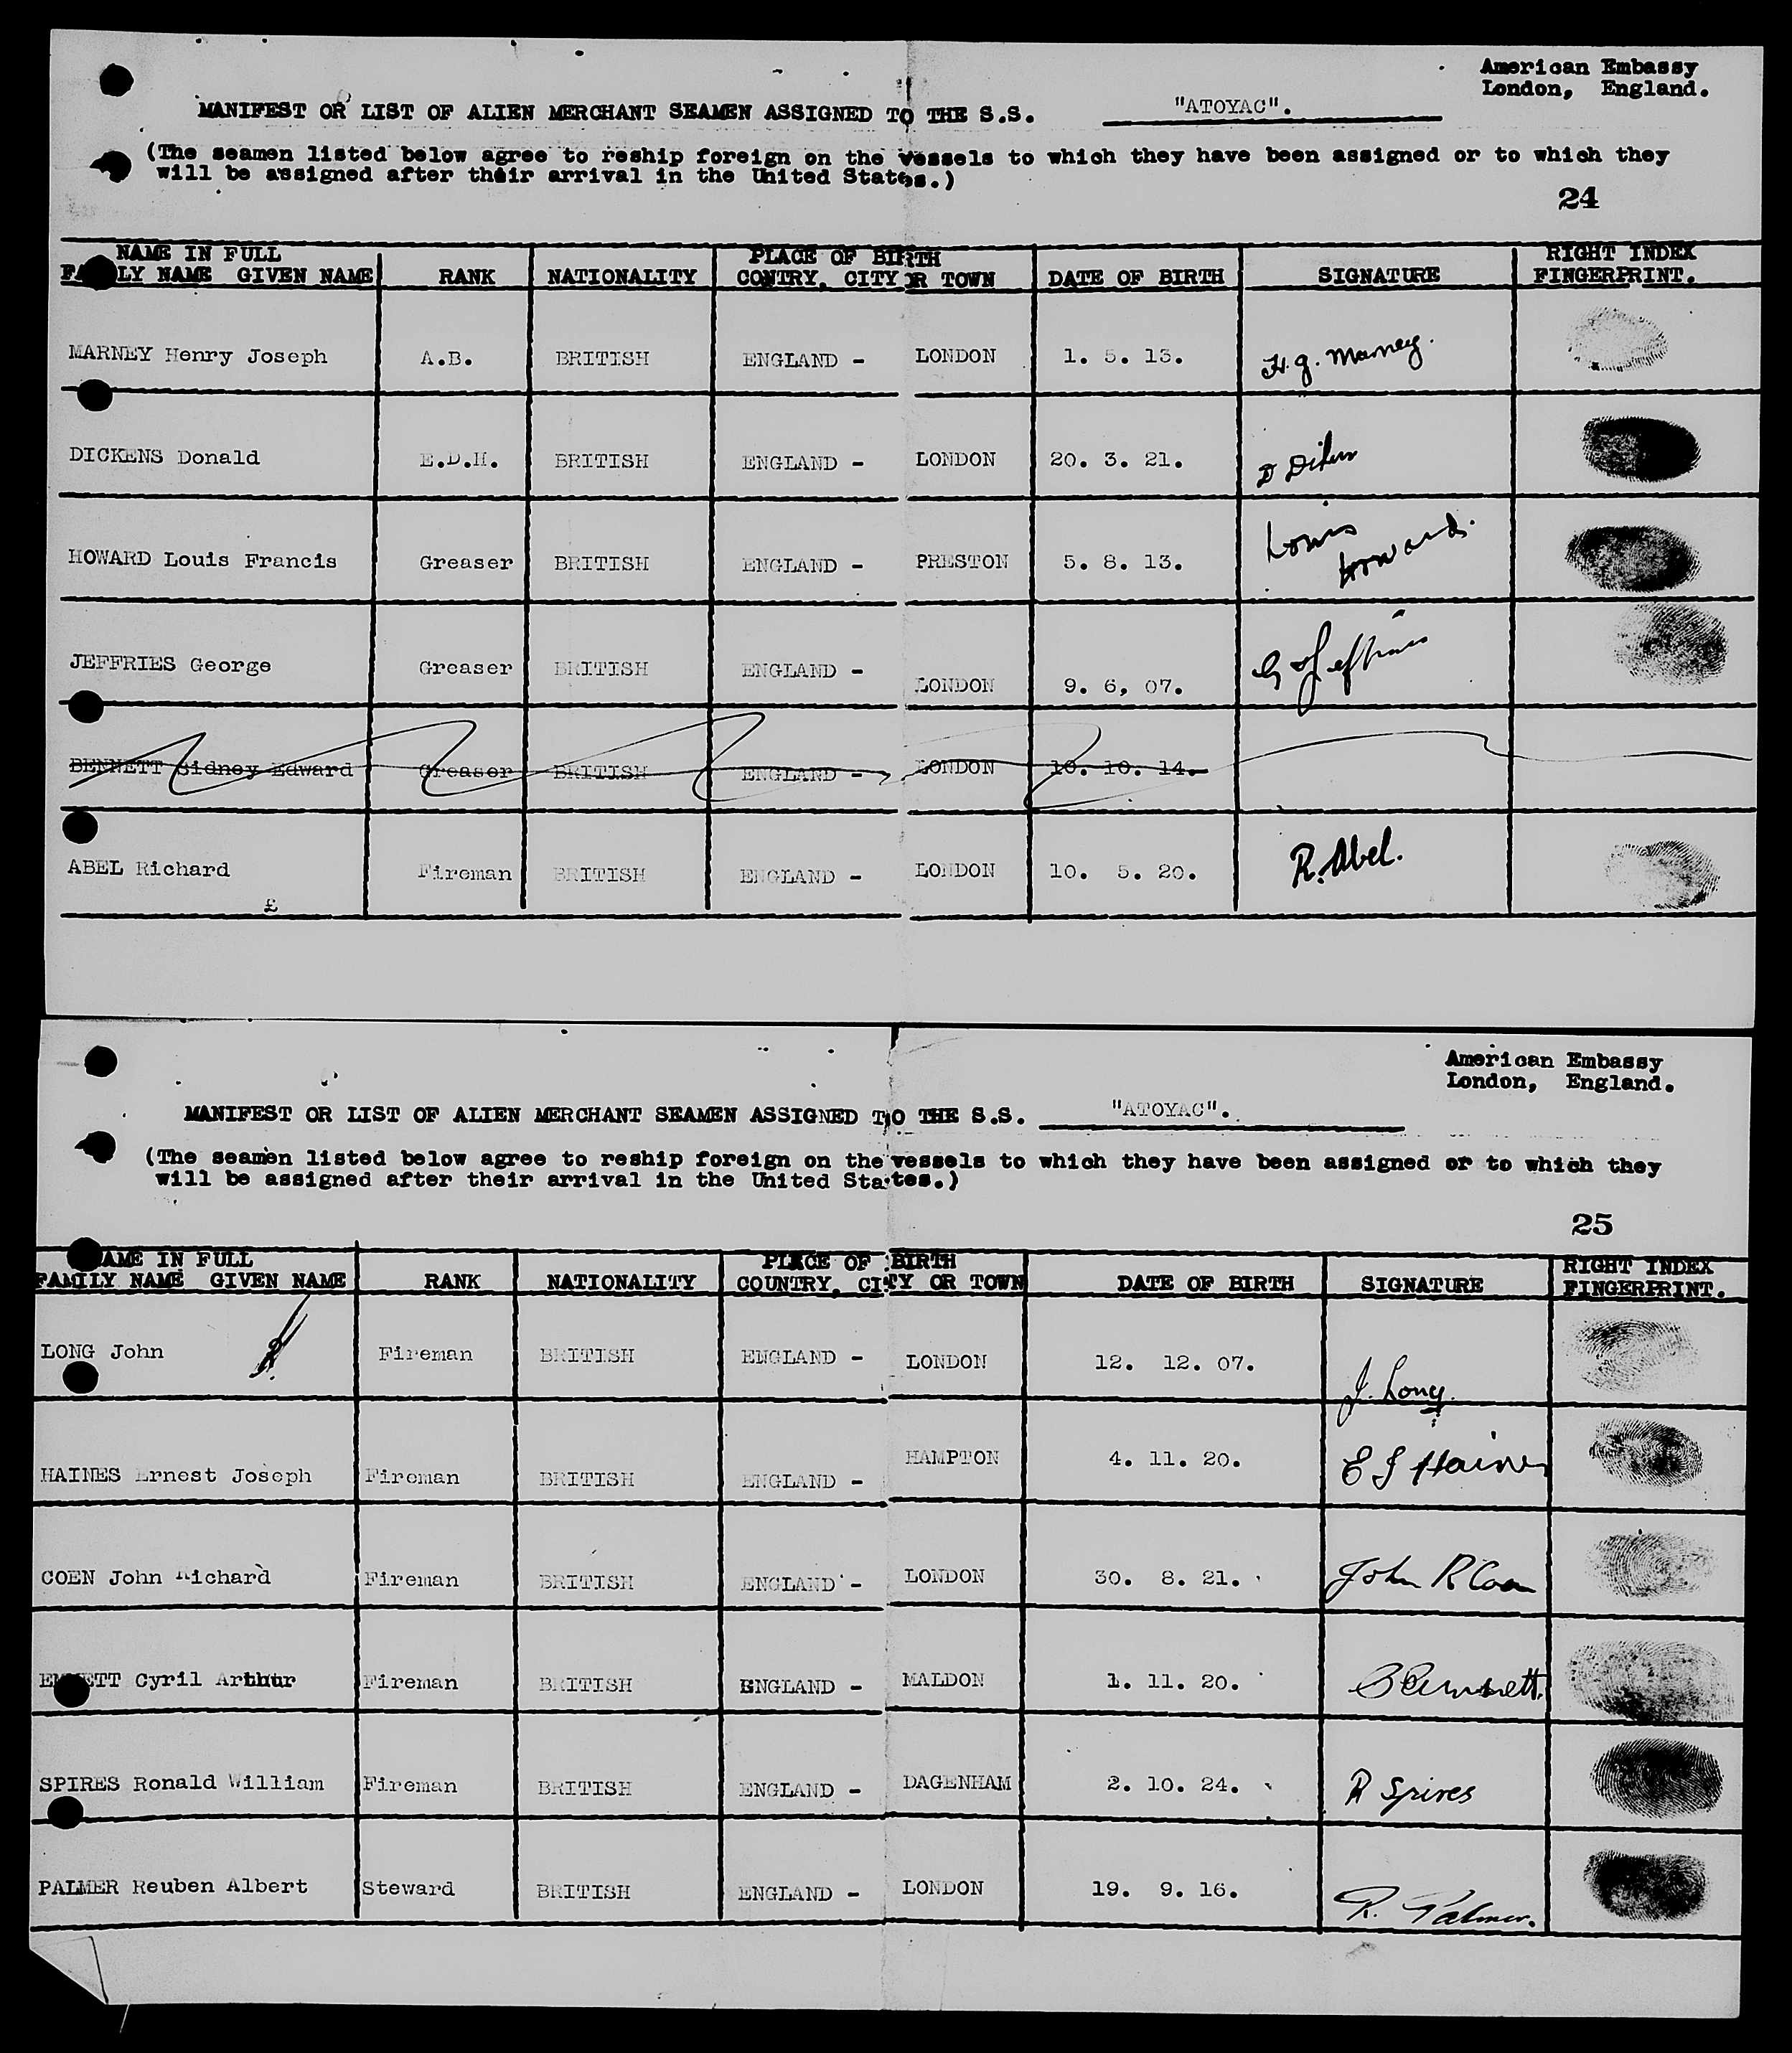 American Embassy
London, England.
MANIFEST OR LIST OF ALIEN MERCHANT SEAMEN ASSIGNED TO THE S.S. "ATOYAC".
(The seamen listed below agree to reship foreign on the vessels to which they have been assigned or to which they
will be assigned after their arrival in the United States.)
24
NAME IN FULL PLACE OF BIRTH RIGHT INDEX
FAMILY NAME GIVEN NAME RANK NATIONALITY CONTRY, CITY OR TOWN DATE OF BIRTH SIGNATURE FINGERPRINT.
MARNEY Henry Joseph A.B. BRITISH ENGLAND - LONDON 1. 5. 13. H. J. Marney.
DICKENS Donald E.D.H. BRITISH ENGLAND - LONDON 20. 3. 21. D
HOWARD Louis Francis Greaser BRITISH ENGLAND - PRESTON 5. 8. 13. Louis
Howard.
JEFFRIES George Greaser BRITISH ENGLAND - LONDON 9. 6, 07. G Jeffries
BENNETT Sidney Edward Greaser BRITISH ENGLAND - LONDON 10. 10. 14.
ABEL Richard Fireman BRITISH ENGLAND - LONDON 10. 5. 20. R. Abel.
£
American Embassy
London, England.
MANIFEST OR LIST OF ALIEN MERCHANT SEAMEN ASSIGNED TO THE S.S. "ATOYAC".
(The seamen listed below agree to reship foreign on the vessels to which they have been assigned or to which they
will be assigned after their arrival in the United States.)
25
NAME IN FULL PLACE OF BIRTH RIGHT INDEX
FAMILY NAME GIVEN NAME RANK NATIONALITY COUNTRY, CITY OR TOWN DATE OF BIRTH SIGNATURE FINGERPRINT.
LONG John Fireman BRITISH ENGLAND - LONDON 12. 12. 07. J. Long.
HAINES Ernest Joseph Fireman BRITISH ENGLAND - HAMPTON 4. 11. 20. E J Haines
COEN John Richard Fireman BRITISH ENGLAND - LONDON 30. 8. 21. John R Coen
ETT Cyril Arthur Fireman BRITISH ENGLAND - MALDON 1. 11. 20.
SPIRES Ronald William Fireman BRITISH ENGLAND - DAGENHAM 2. 10. 24. R Spires
PALMER Reuben Albert Steward BRITISH ENGLAND - LONDON 19. 9. 16. R. Palmer.